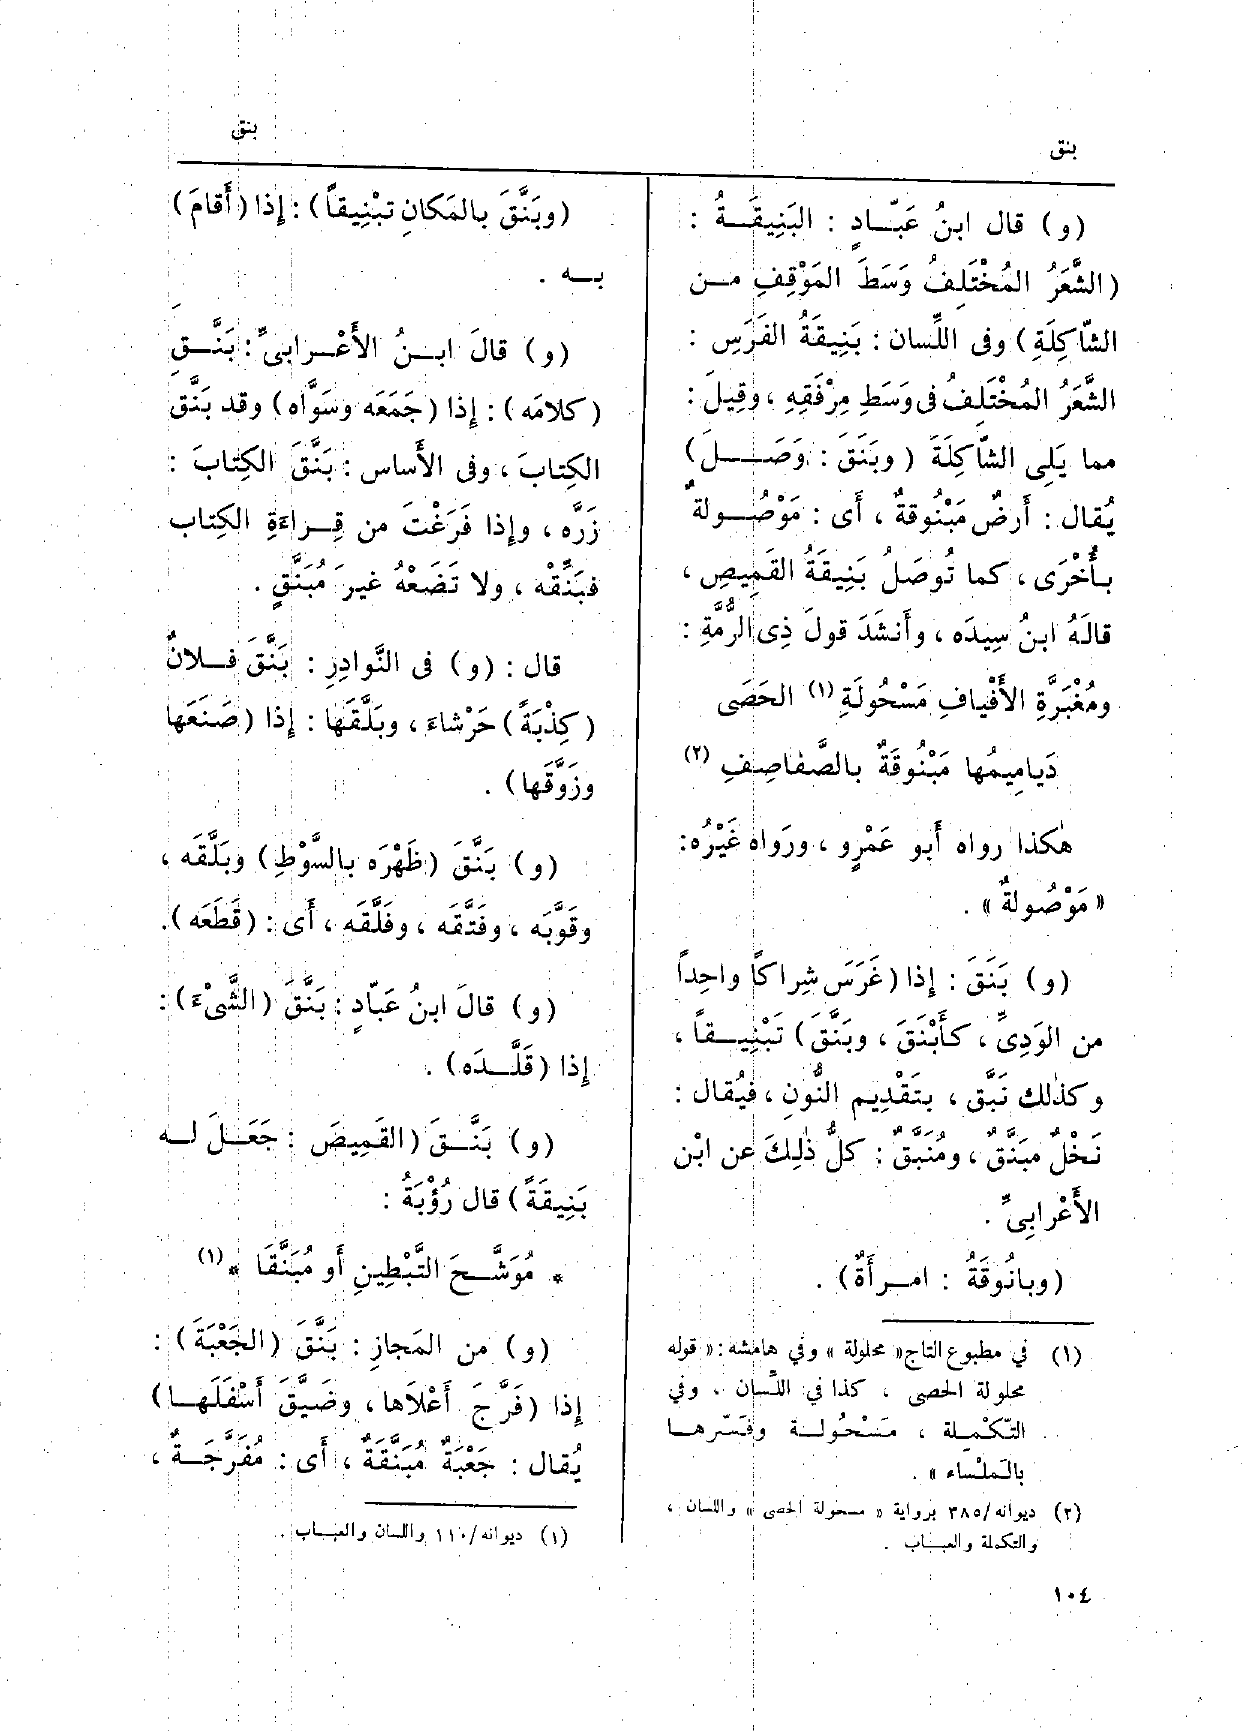 بنق
بنق
(و) قال ابنُ عَبّادٍ : البَنِيقَةُ :
(الشَّعَرُ المُخْتَلِفُ وَسَطَ المَوْقِفِ من
الشّاكِلَةِ) وفى اللِّسان : بَنِيقَةُ الفَرَسِ :
الشَّعَرُ المُخْتَلِفُ فى وَسَطِ مِرْفَقِهِ ، وقِيلَ :
مما يَلِى الشّاكِلَةَ (وبَنَقَ : وَصَلَ)
يُقال : أَرضٌ مَبْنُوقةٌ ، أَى : مَوْصُولةٌ
بأُخْرَى ، كما تُوصَلُ بَنِيقَةُ القَمِيصِ ،
قالَهُ ابنُ سِيدَه ، وأَنشَدَ قولَ ذِى الرُّمَّةِ :
ومُغْبَرَّةِ الأَفْيافِ مَسْحُولَةِ (١) الحَصَى
دَيامِيمُها مَبْنُوقةٌ بالصَّفاصِفِ (٢)
هٰكذا رواه أَبو عَمْرٍو ، ورَواه غَيْرُه:
« مَوْصُولةٌ » .
(و) بَنَقَ : إذا (غَرَسَ شِراكاً واحِداً
من الوَدِىِّ ، كأَبْنَقَ ، وبَنَّقَ) تَبْنِيقاً ،
وكذٰلك نَبَّق ، بتَقْدِيمِ النُّونِ ، فيُقال :
نَخْلٌ مُبَنَّقٌ ، ومُنَبَّقٌ : كلُّ ذٰلِكَ عن ابْن
الأَعْرابِىِّ .
(وبانُوقَةُ : امرأَةٌ) .
(١) في مطبوع التاج « محلولة » وفي هامشه : « قوله
محلولة الحصى ، كذا في اللَّسان ، وفي
التَّكْمِلة ، مَسْحُولة وفَسّرها
بالمَلْساء » .
(٢) ديوانه/٣٨٥ برواية « مسحولة الحصى » واللسان ،
والتكملة والعباب .
١٠٤
(وبَنَّقَ بالمَكانِ تَبْنِيقاً) : إذا (أَقامَ)
به .
(و) قالَ ابنُ الأَعْرابىِّ : بَنَّقَ
(كلامَه) : إذا (جَمَعَه وسَوَّاه) وقد بَنَّق
الكِتابَ ، وفى الأَساس : بَنَّقَ الكِتابَ :
زَرَّه ، وإذا فَرَغْتَ من قِراءَةِ الكِتاب
فبَنِّقْه ، ولا تَضَعْهُ غيرَ مُبَنَّقٍ .
قال : (و) فى النَّوادِرِ : بَنَّقَ فلانٌ
(كِذْبَةً) حَرْشاءَ ، وبَلَّقَها : إذا (صَنَعَها
وزَوَّقَها) .
(و) بَنَّقَ (ظَهْرَه بالسَّوْطِ) وبَلَّقَه ،
وقَوَّبَه ، وفَتَّقَه ، وفَلَّقَه ، أَى : (قَطَعَه).
(و) قالَ ابنُ عَبّادٍ : بَنَّقَ (الشَّىْءَ) :
إذا (قَلَّدَه) .
(و) بَنَّقَ (القَمِيصَ : جَعَلَ له
بَنِيقَةً) قال رُؤْبَةُ :
* مُوَشَّحَ التَّبْطِينِ أَو مُبَنَّقَا * (١)
(و) من المَجازِ : بَنَّقَ (الجَعْبَةَ) :
إذا (فَرَّجَ أَعْلاَها ، وضَيَّقَ أَسْفَلَها)
يُقال : جَعْبَةٌ مُبَنَّقَةٌ ، أَى : مُفَرَّجَةٌ ،
(١) ديوانه/١١٠ واللسان والعباب .